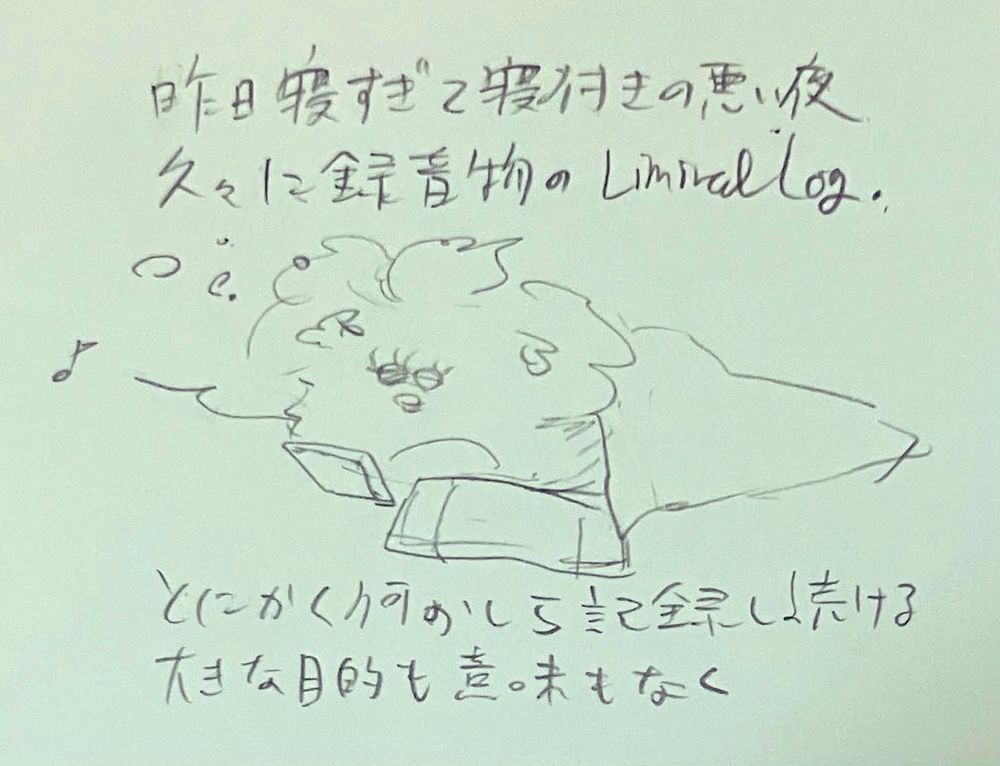 昨日寝すぎて寝付きの悪い夜
久々に録音物のLiminal Log.
とにかく何かしら記録し続ける
大きな目的も意味もなく